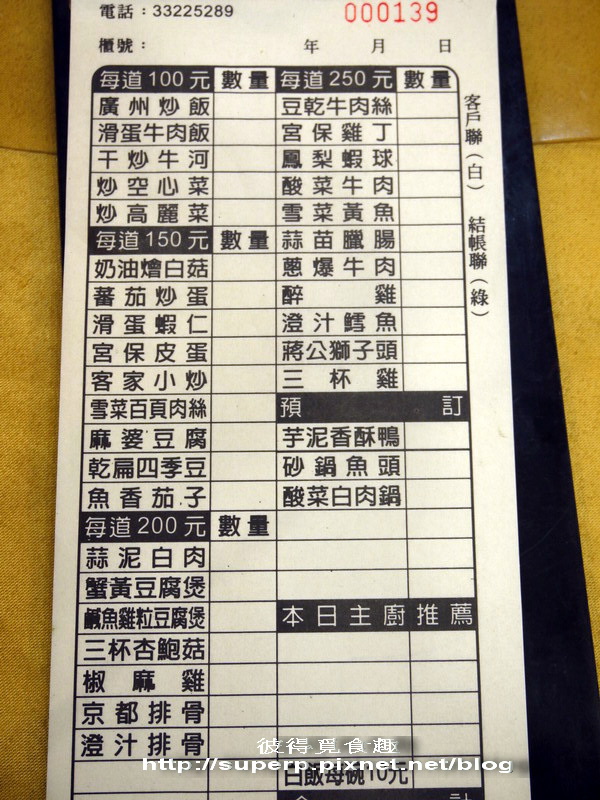 電話：33225289
000139
櫃號：
年 月 日
每道100元 數量
廣州炒飯
滑蛋牛肉飯
干炒牛河
炒空心菜
炒高麗菜
每道150元 數量
奶油燴白菇
蕃茄炒蛋
滑蛋蝦仁
宮保皮蛋
客家小炒
雪菜百頁肉絲
麻婆豆腐
乾扁四季豆
魚香茄子
每道200元 數量
蒜泥白肉
蟹黃豆腐煲
鹹魚雞粒豆腐煲
三杯杏鮑菇
椒麻雞
京都排骨
澄汁排骨
每道250元 數量
豆乾牛肉絲
宮保雞丁
鳳梨蝦球
酸菜牛肉
雪菜黃魚
蒜苗臘腸
蔥爆牛肉
醉雞
澄汁鱈魚
蔣公獅子頭
三杯雞
預訂
芋泥香酥鴨
砂鍋魚頭
酸菜白肉鍋
本日主廚推薦
白飯每碗10元
客戶聯（白） 結帳聯（綠）
彼得覓食趣
http://superp.pixnet.net/blog